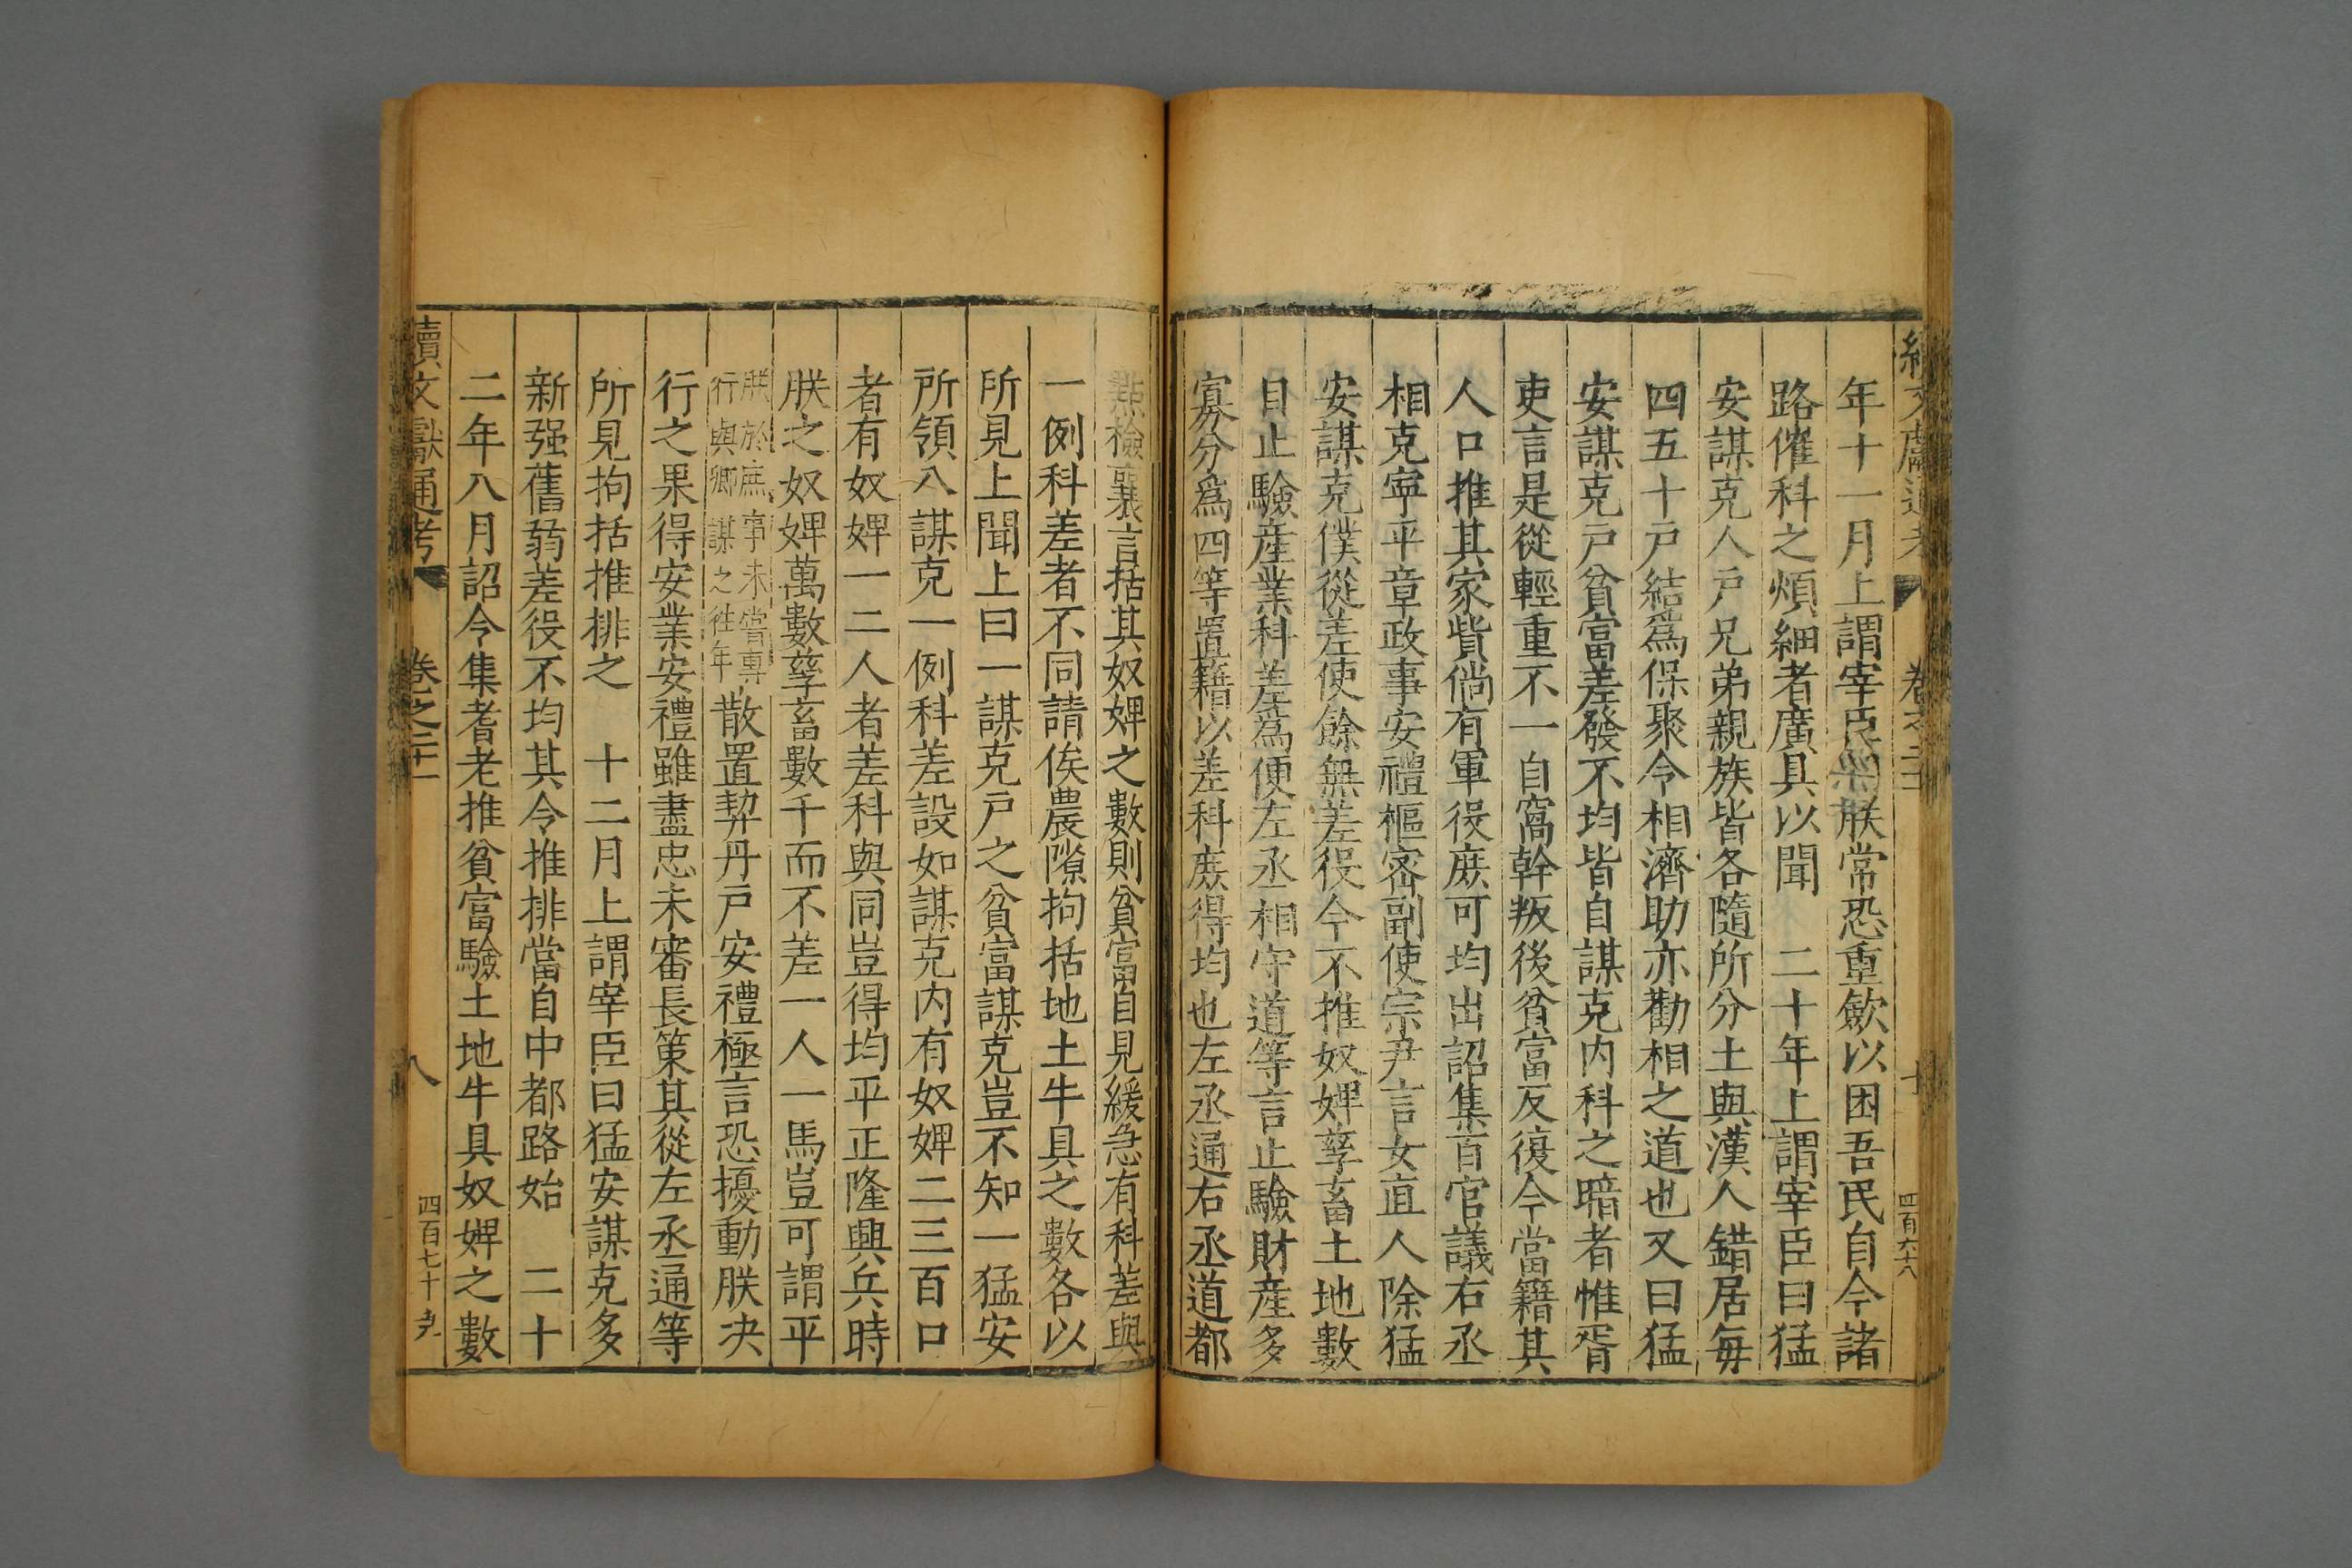 年十一月上謂宰臣朕常恐重歛以困吾民自今諸
路催科之煩細者廣具以聞 二十年上謂宰臣曰猛
安謀克人戶兄弟親族皆各隨所分土與漢人錯居每
四五十戶結爲保聚令相濟助亦勸相之道也又曰猛
安謀克戶貧富差發不均皆自謀克內科之暗者惟胥
吏言是從輕重不一自窩幹叛後貧富反復今當籍其
人口推其家貲倘有軍役庶可均出詔集百官議右丞
相克寧平章政事安禮樞密副使宗尹言女直人除猛
安謀克僕從差使餘無差役今不推奴婢孳畜土地數
目止驗產業科差爲便左丞相守道等言止驗財產多
寡分爲四等置籍以差科庶得均也左丞通右丞道都
點檢襄言括其奴婢之數則貧富自見緩急有科差與
一例科差者不同請俟農隙拘括地土牛具之數各以
所見上聞上曰一謀克戶之貧富謀克豈不知一猛安
所領八謀克一例科差設如謀克內有奴婢二三百口
者有奴婢一二人者差科與同豈得均平正隆興兵時
朕之奴婢萬數孳畜數千而不差一人一馬豈可謂平
朕於庶事未嘗專
行與卿謀之徃年散置契丹戶安禮極言恐擾動朕决
行之果得安業安禮雖盡忠未審長策其從左丞通等
所見拘括推排之 十二月上謂宰臣曰猛安謀克多
新强舊弱差役不均其令推排當自中都路始 二十
二年八月詔令集耆老推貧富驗土地牛具奴婢之數
續文獻通考 卷之二十 八 四百七十